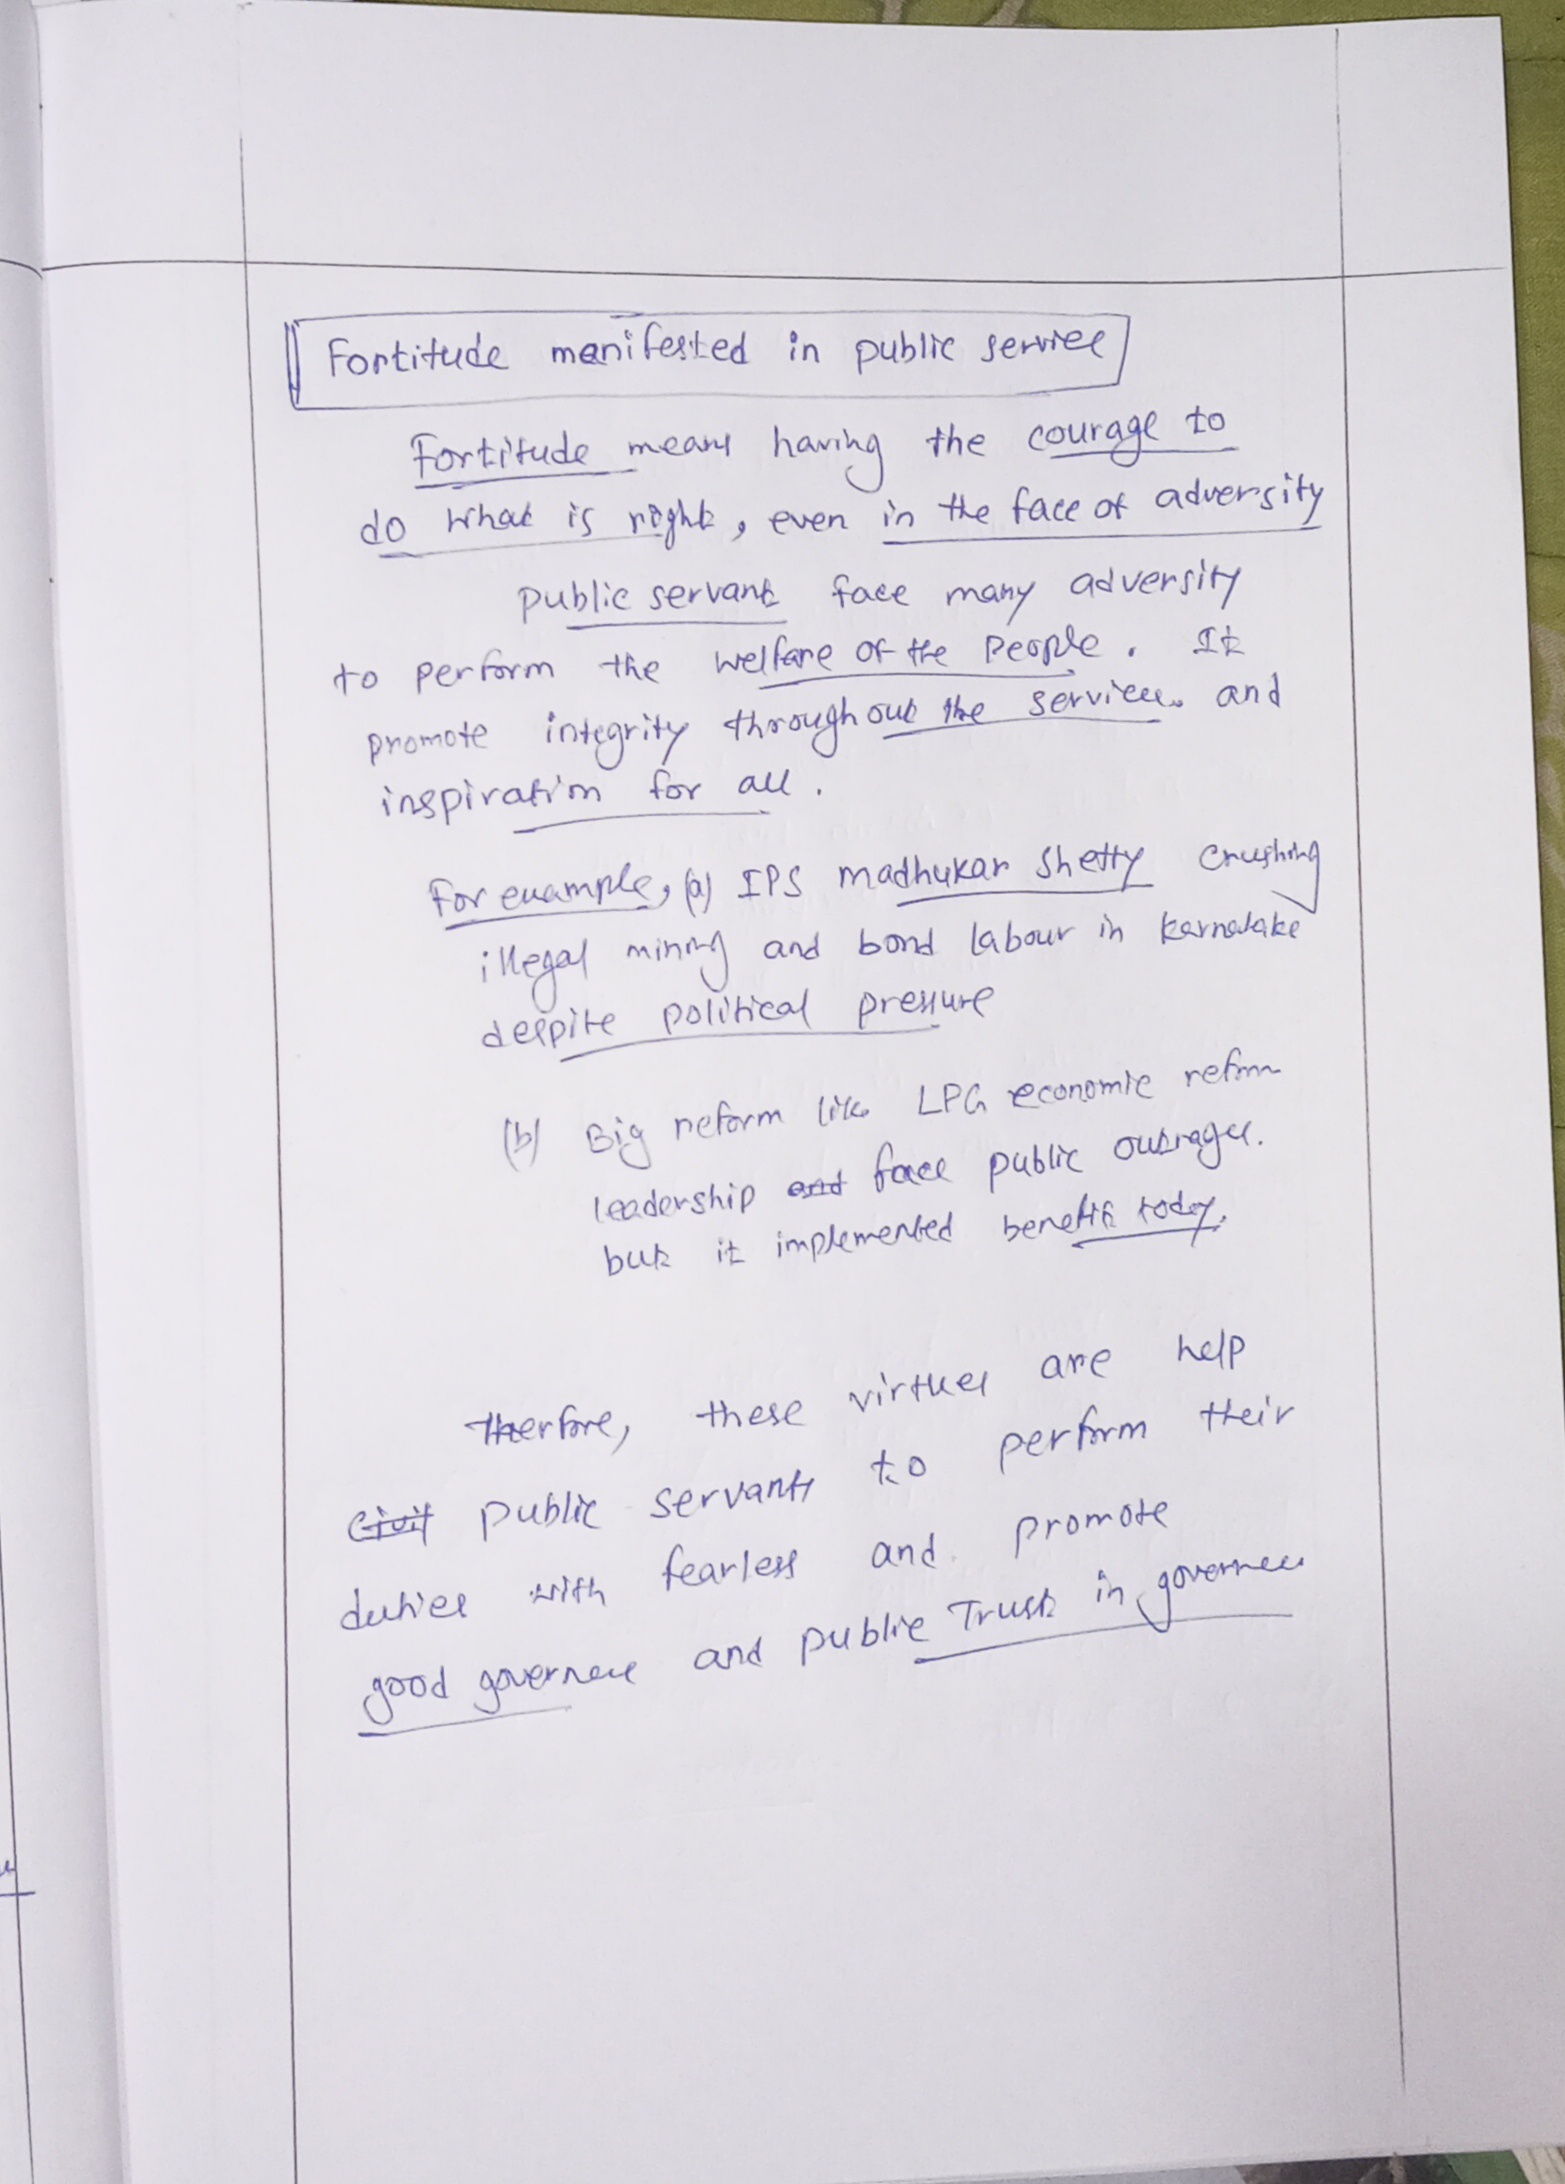 Fortitude manifested in public service
Fortitude means having the courage to
do what is right, even in the face of adversity
public servant face many adversity
to perform the welfare of the people. It
promote integrity throughout the service. and
inspiration for all.
For example, (a) IPS madhukar shetty crushing
illegal mining and bond labour in karnatake
despite political pressure
(b) Big reform like LPG economic reform
leadership and face public outrage.
but it implemented benefit today.
Therfore, these virtues are help
civil public servants to perform their
duties with fearless and promote
good governece and public Trust in governece